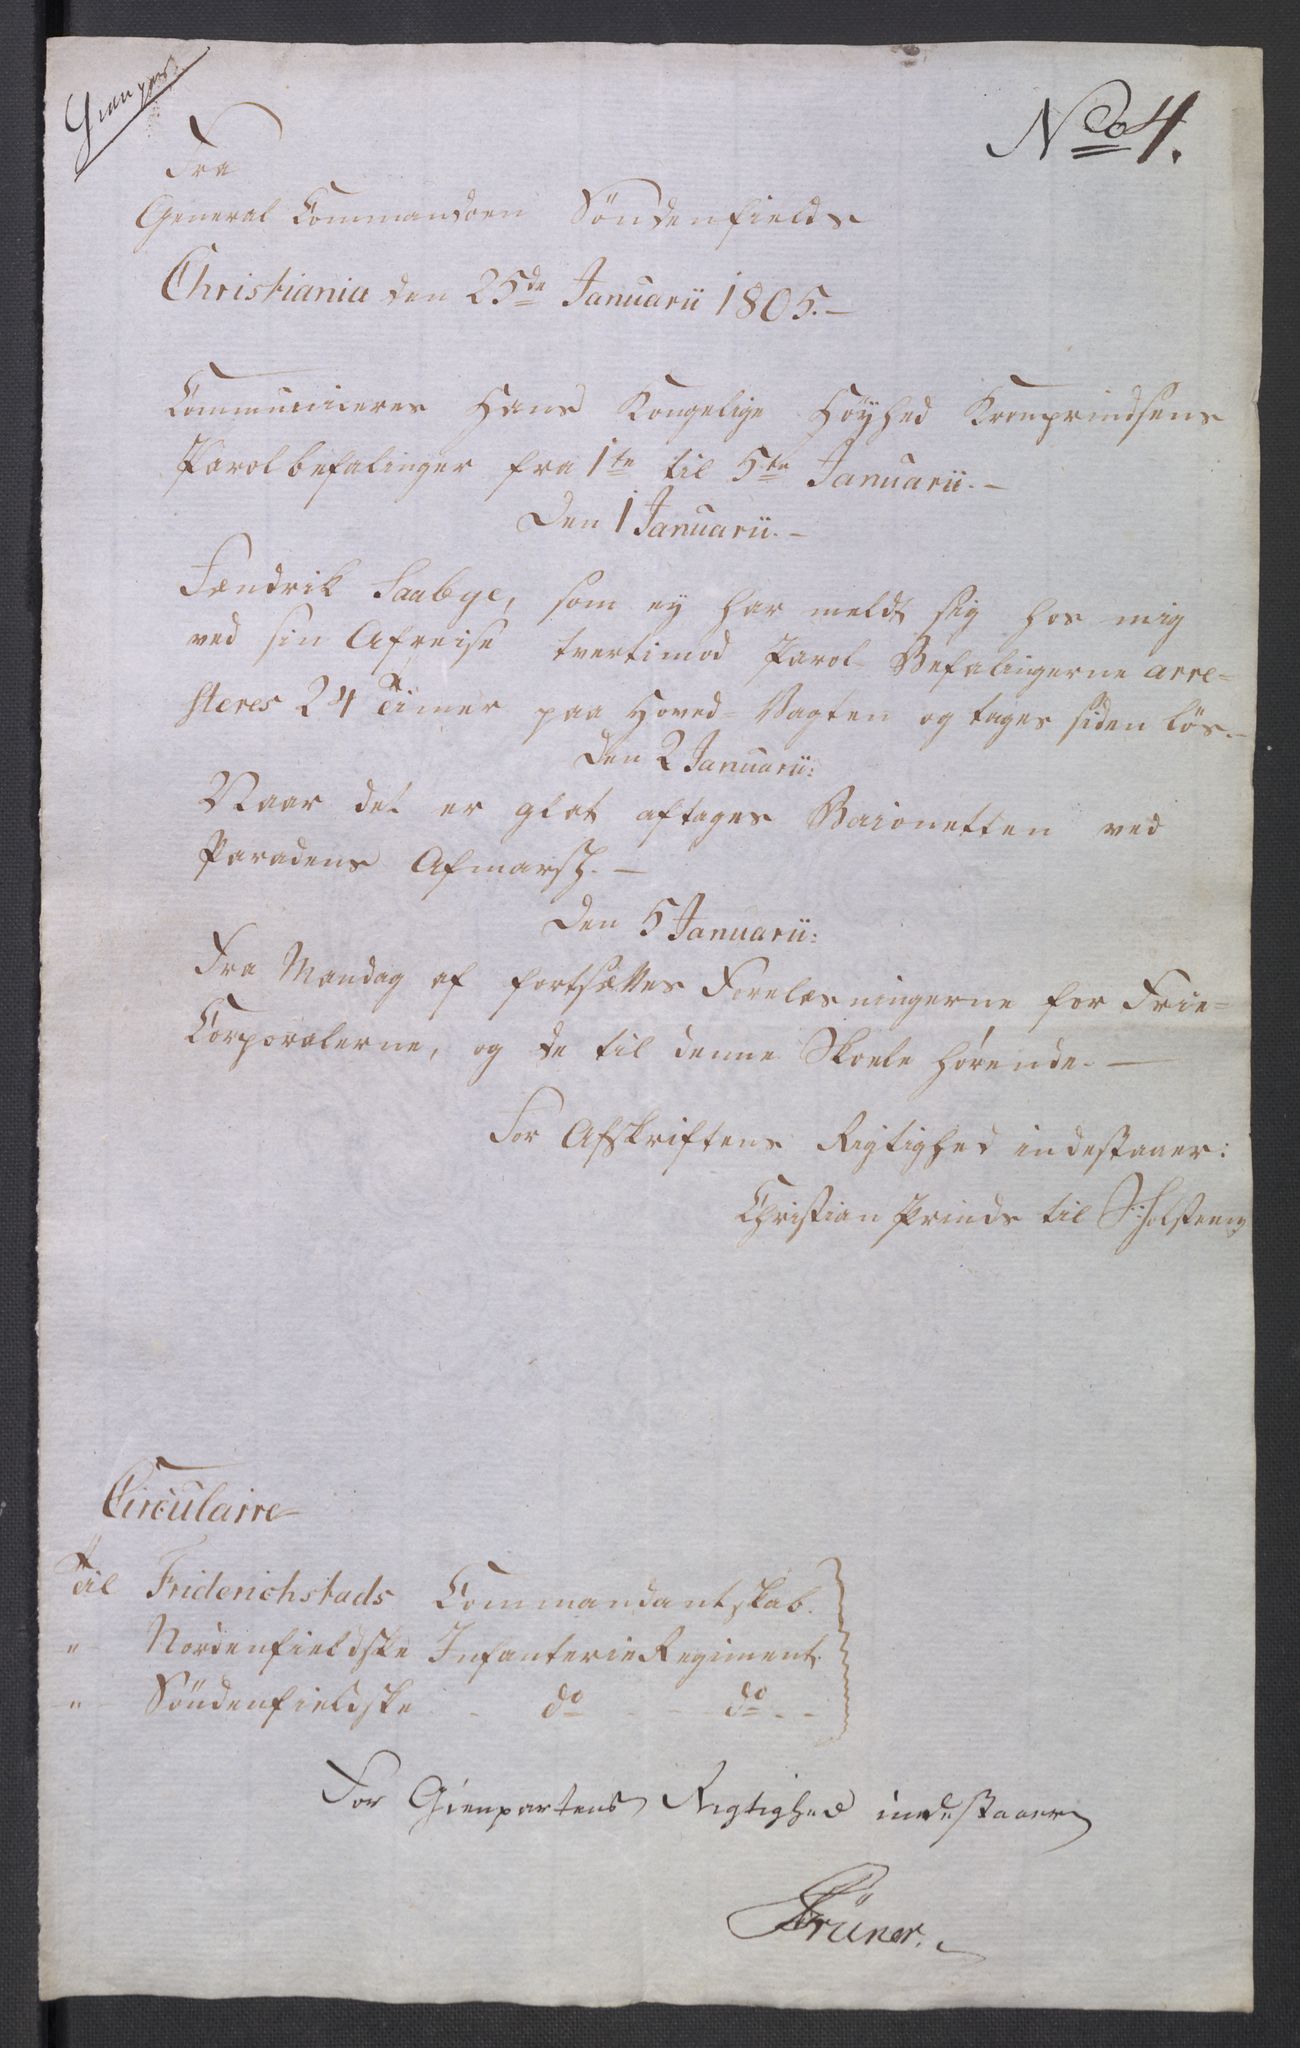 Gienpart
No 4.
Fra
General Commandoen Söndenfields
Christiania den 25de Januarii 1805.-
Communiceres Hans Kongelige Höyhed Kronprindsens
Parolbefalinger fra 1te til 5te Januarii.-
Den 1 Januarii.-
Fændrik Saabye, som ey har meldt sig hos mig
ved sin Afreise tvertimod Parol-Befalingerne arre=
steres 24 Timer paa Hoved-Vagten og tages siden lös.-
Den 2 Januarii:
Naar det er glat aftages Baionetten ved
Paradens Afmarsch.-
Den 5 Januarii:
Fra Mandag af fortsættes Forelæsningerne for Frie=
Corporalerne, og de til denne Skoele hörende.-
For Afskriftens Rigtighed indestaaer:
Christian Prinds til S: Holsteen
Circulaire
Til Friderichstads Commandantskab.
" Nordenfieldske Infanterie Regiment.
-"- Söndenfieldske - do - - do - -
For Gienpartens Rigtighed indestaaer
Brüner.